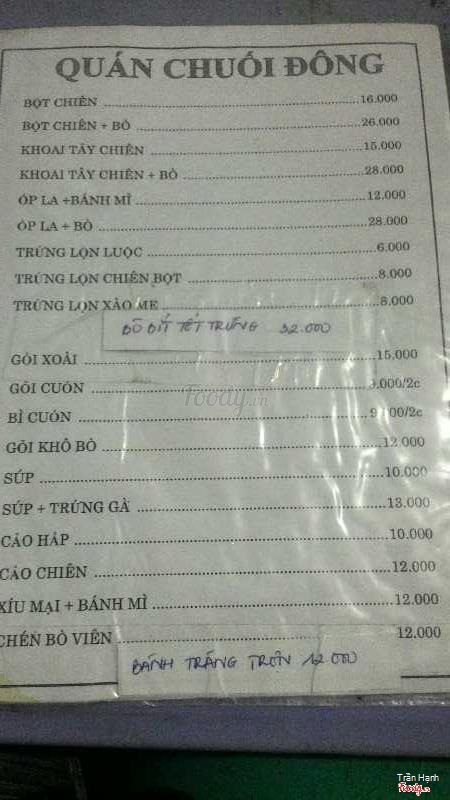 QUÁN CHUỐI ĐÔNG
BỘT CHIÊN 16.000
BỘT CHIÊN + BÒ 26.000
KHOAI TÂY CHIÊN 15.000
KHOAI TÂY CHIÊN + BÒ 28.000
ÓP LA +BÁNH MÌ 12.000
ÓP LA + BÒ 28.000
TRỨNG LỘN LUỘC 6.000
TRỨNG LỘN CHIÊN BỘT 8.000
TRỨNG LỘN XÀO ME 8.000
BÒ BÍT TẾT TRỨNG 32.000
GỎI XOÀI 15.000
Foody.vn
GỎI CUỐN .000/2c
BÌ CUỐN 9 00/2c
GỎI KHÔ BÒ 12.000
SÚP 10.000
SÚP + TRỨNG GÀ 13.000
CẢO HẤP 10.000
CẢO CHIÊN 12.000
XÍU MẠI + BÁNH MÌ 12.000
CHÉN BÒ VIÊN 12.000
BÁNH TRÁNG TRỘN 12.000
Trần Hạnh
Foody.vn